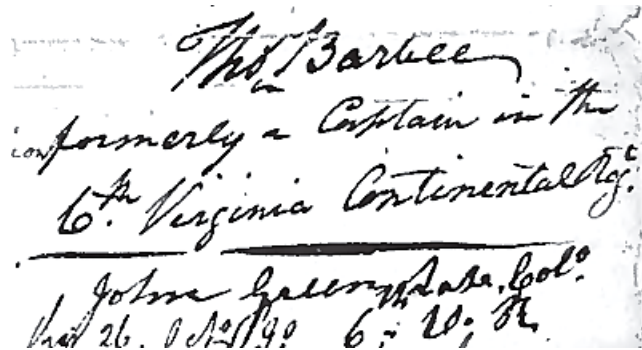 Tho.s Barbee
formerly a Captain in the
6.th Virginia Continental Rg.t
John Green late Col.o
26. 6th V. R.